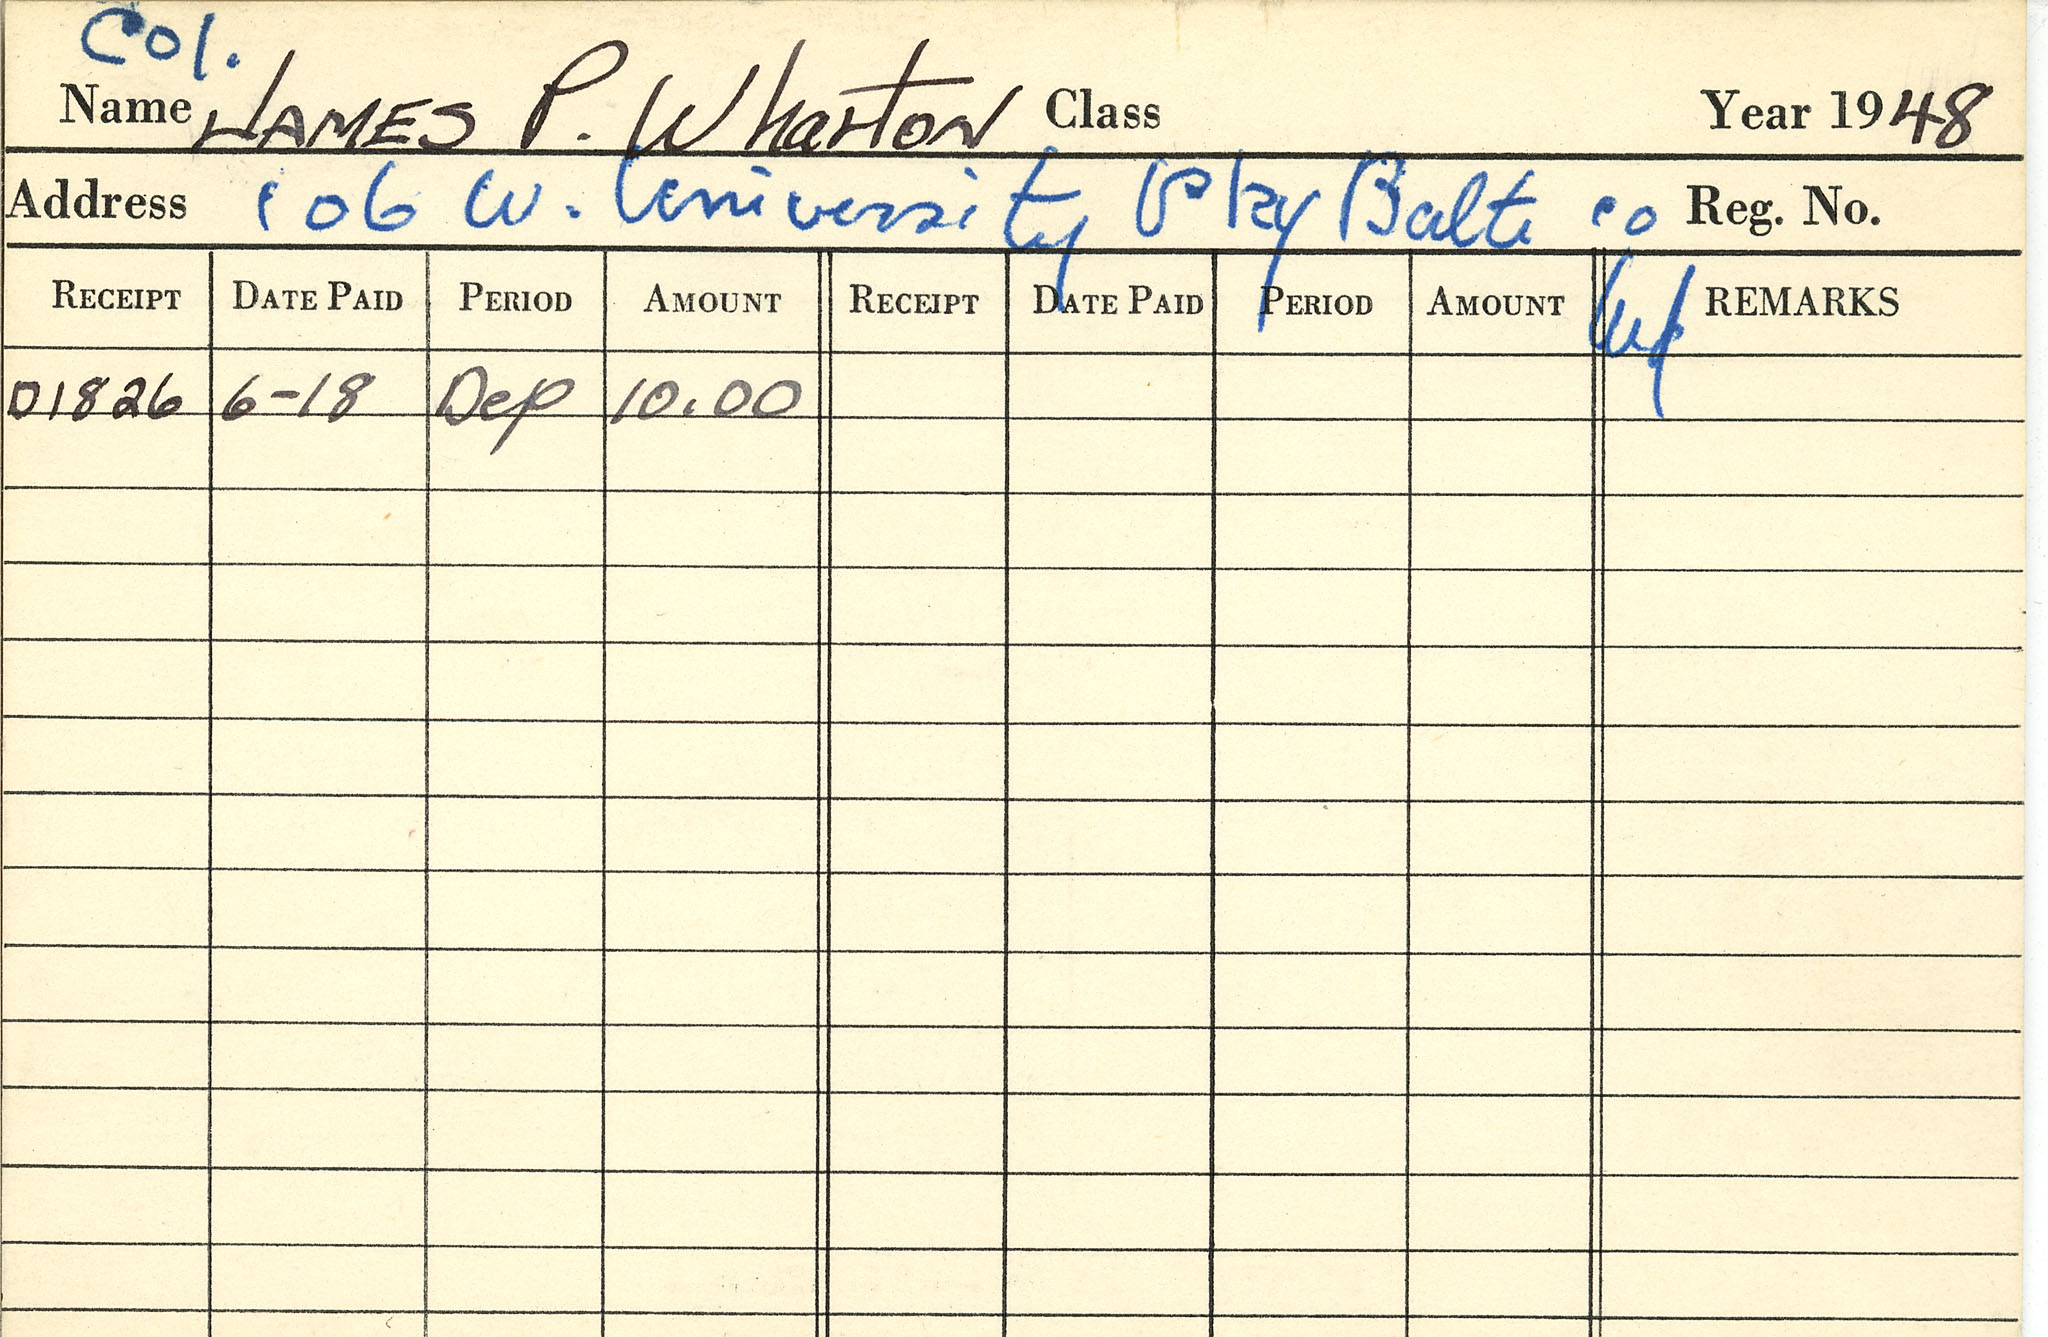 Col.
Name JAMES P. Wharton Class Year 1948
Address 106 W. University Pky Balto 10 Reg. No.
Md
RECEIPT DATE PAID PERIOD AMOUNT RECEIPT DATE PAID PERIOD AMOUNT REMARKS
D1826 6-18 Dep 10.00